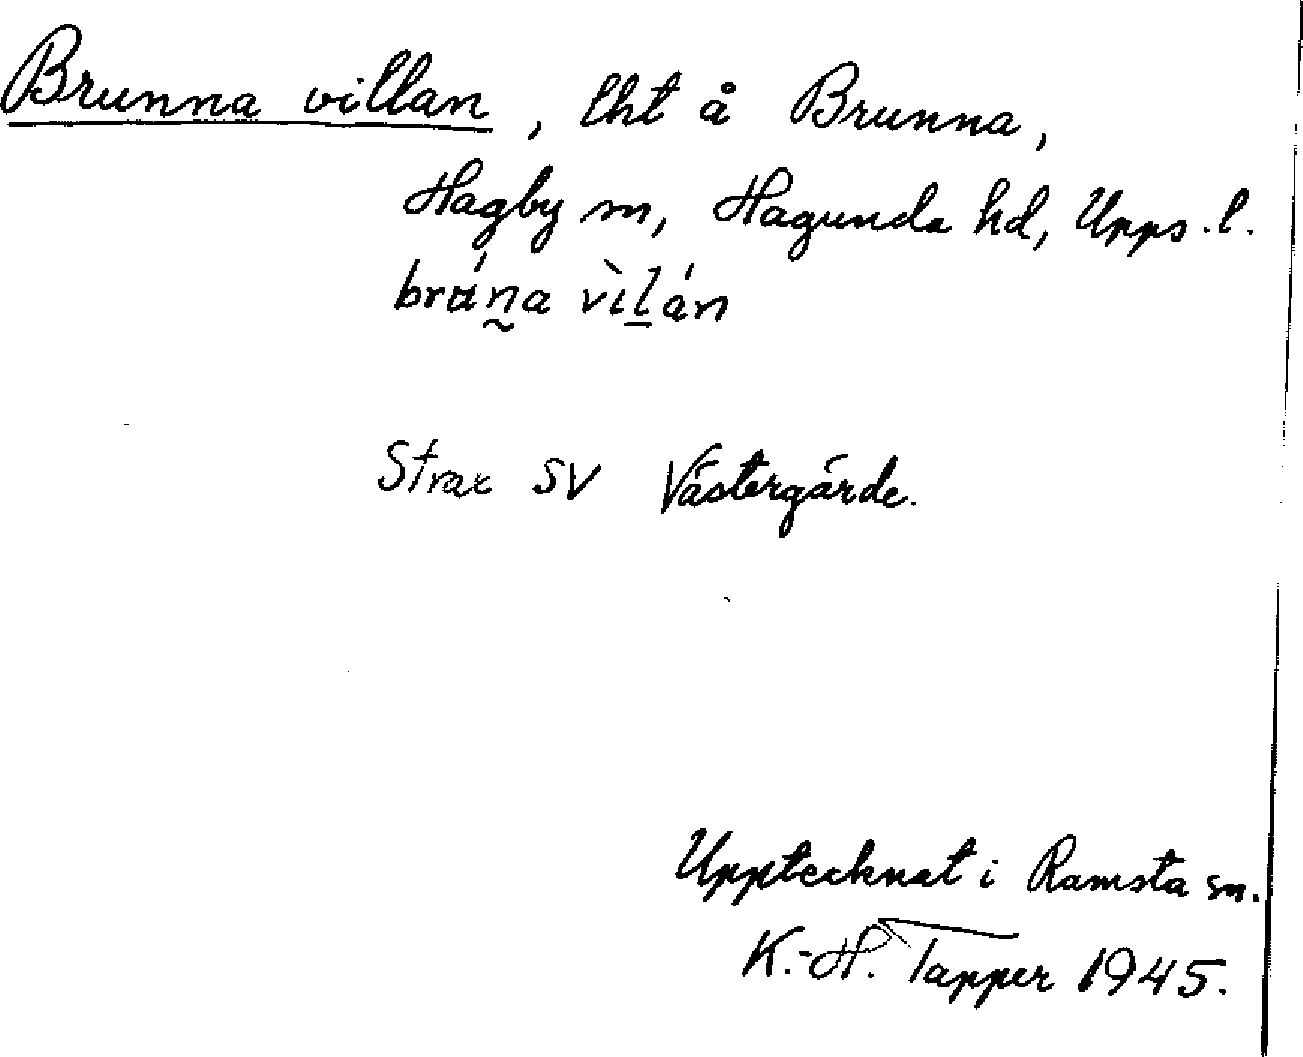 Brunna villan, lht å Brunna,
Hagby sn, Hagunda hd, Upps. l.
brána vìlán
Strax SV Västergärde.
Upptecknat i Ramsta sn.
K.-H. Tapper 1945.